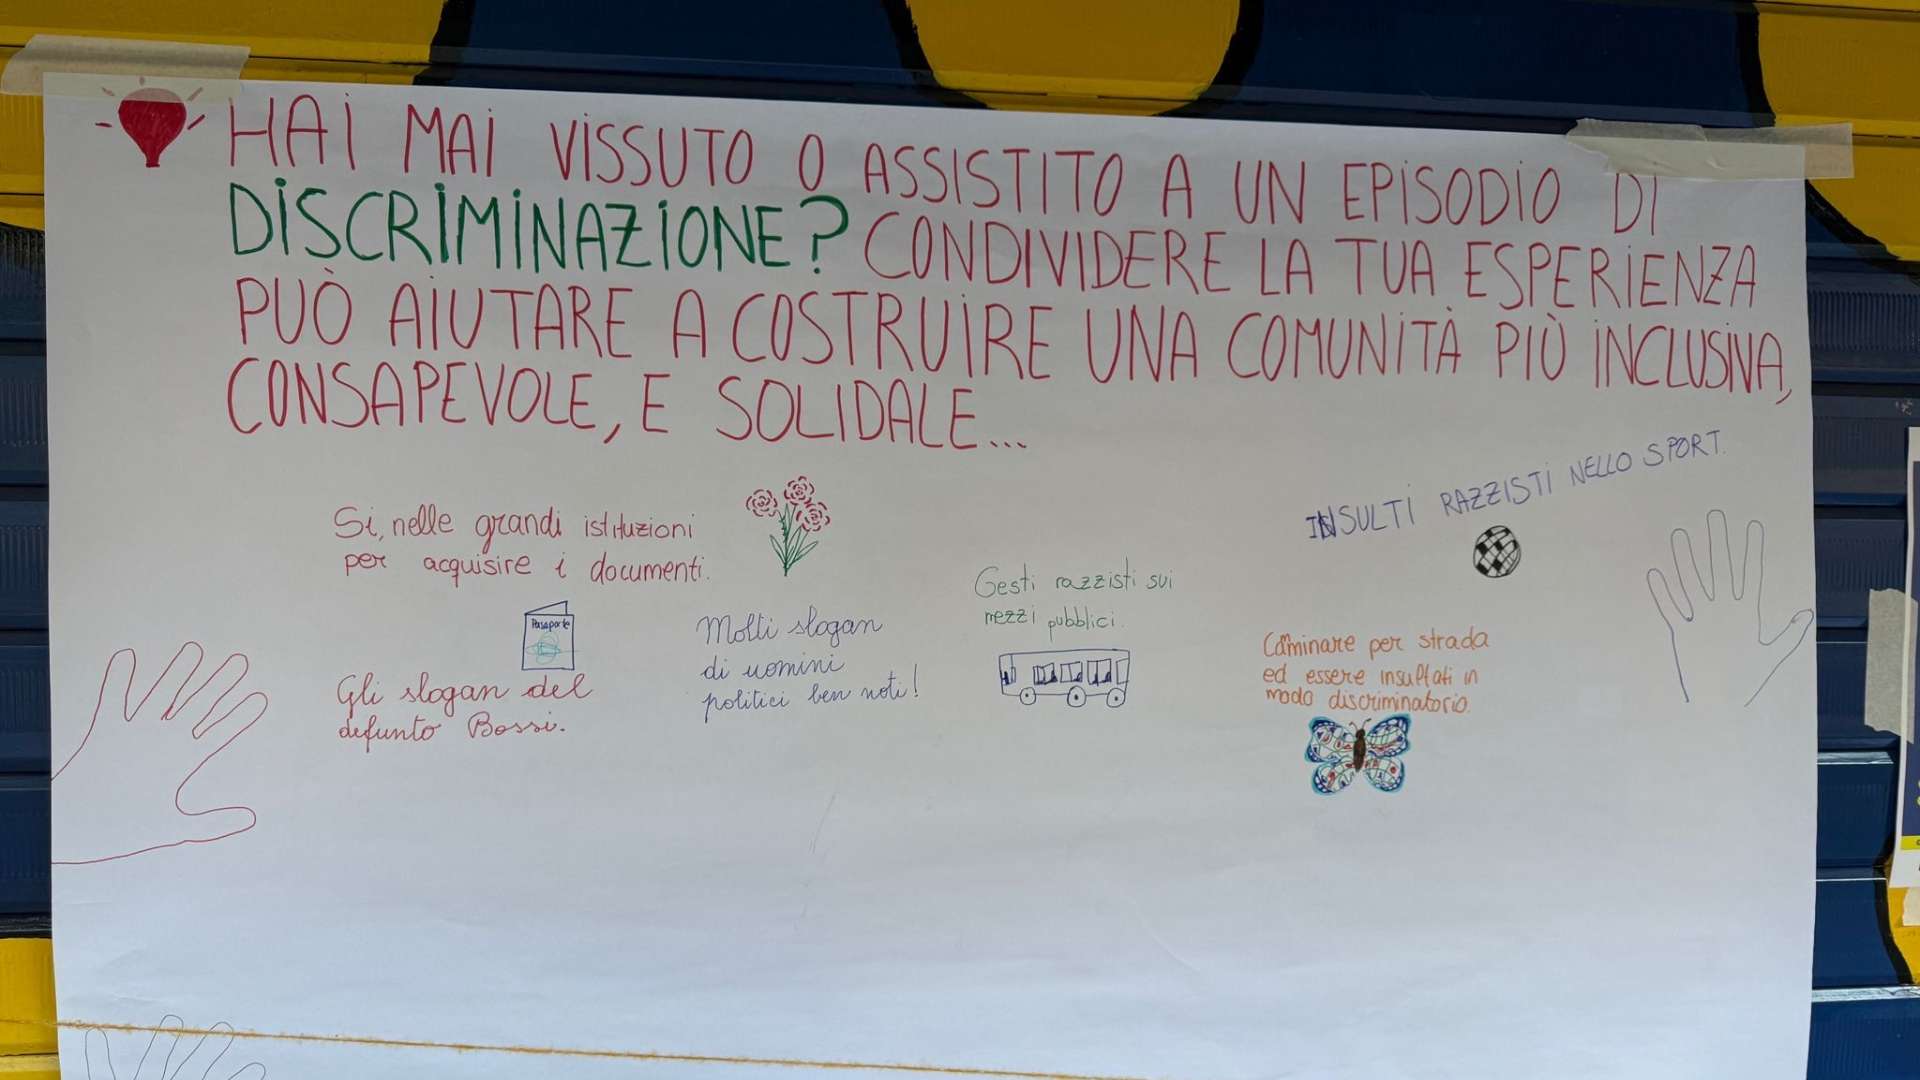 HAI MAI VISSUTO O ASSISTITO A UN EPISODIO DI
DISCRIMINAZIONE? CONDIVIDERE LA TUA ESPERIENZA
PUÒ AIUTARE A COSTRUIRE UNA COMUNITÀ PIÙ INCLUSIVA,
CONSAPEVOLE, E SOLIDALE...
Si, nelle grandi istituzioni
per acquisire i documenti.
Passaporto
Gli slogan del
defunto Bossi.
Molti slogan
di uomini
politici ben noti!
Gesti razzisti sui
mezzi pubblici.
INSULTI RAZZISTI NELLO SPORT.
Camminare per strada
ed essere insultati in
modo discriminatorio.